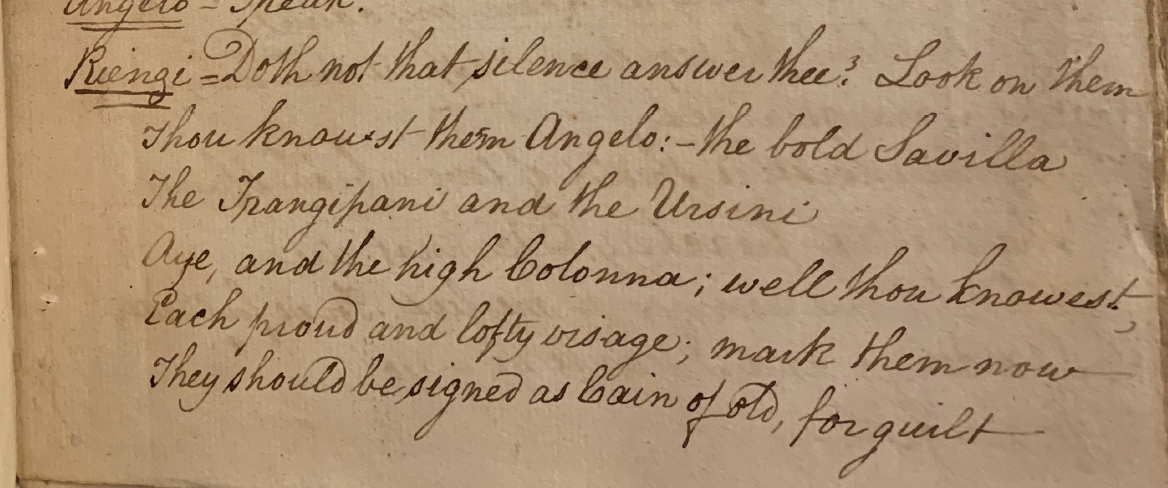 Angelo = Speak.
Riengi = Doth not that silence answer thee? Look on them
Thou knowst them Angelo: - the bold Savilla
The Frangipani and the Ursini
Aye, and the high Colonna; well thou knowest,
Each proud and lofty visage; mark them now
They should be signed as Cain of old, for guilt